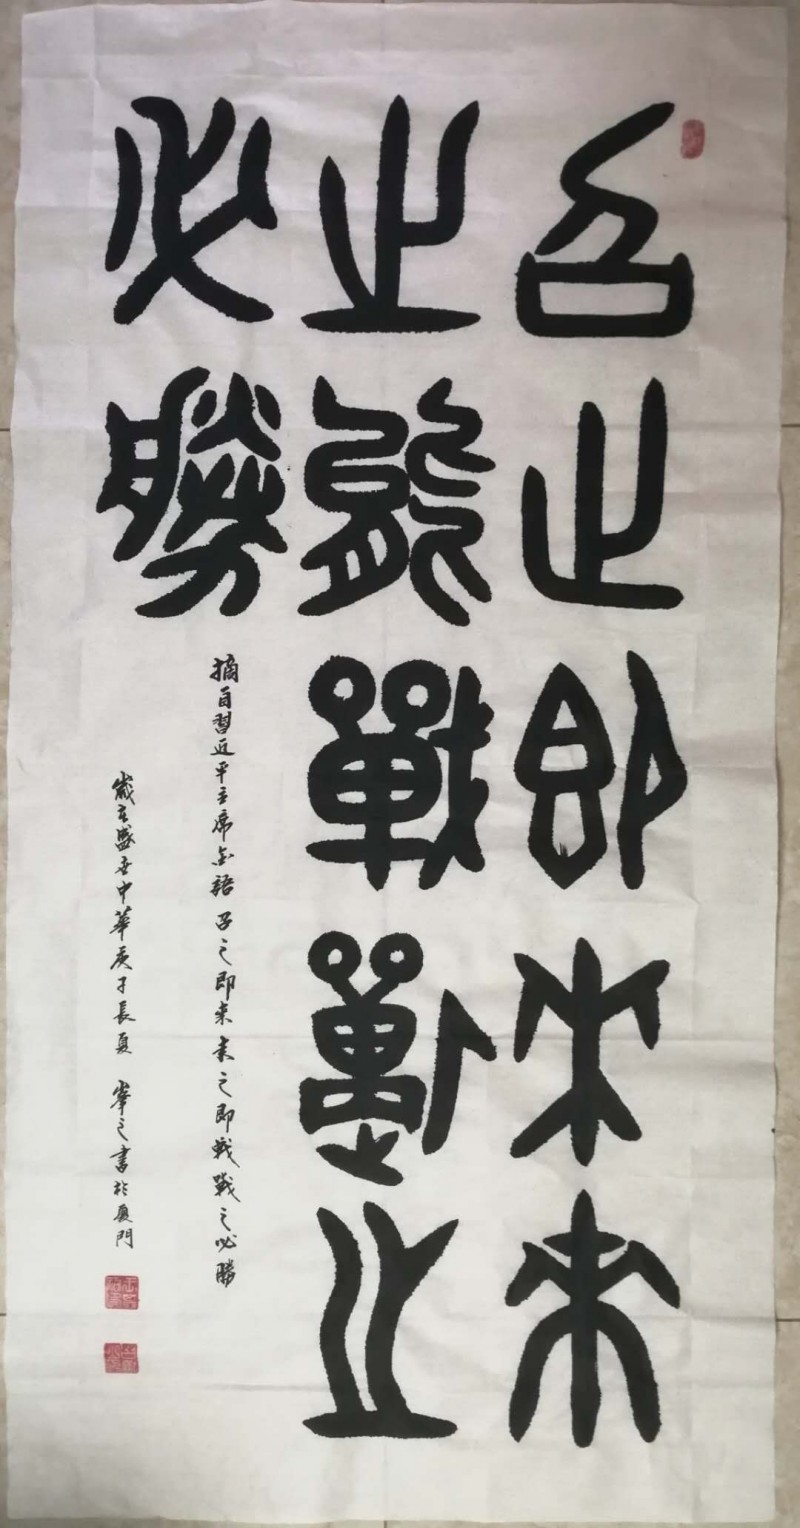 召之即来来
之能戰戰之
必勝
摘自習近平主席金語召之即来来之即戦戰之必勝
歲在盛世中華庚子長夏 峯之書於廈門